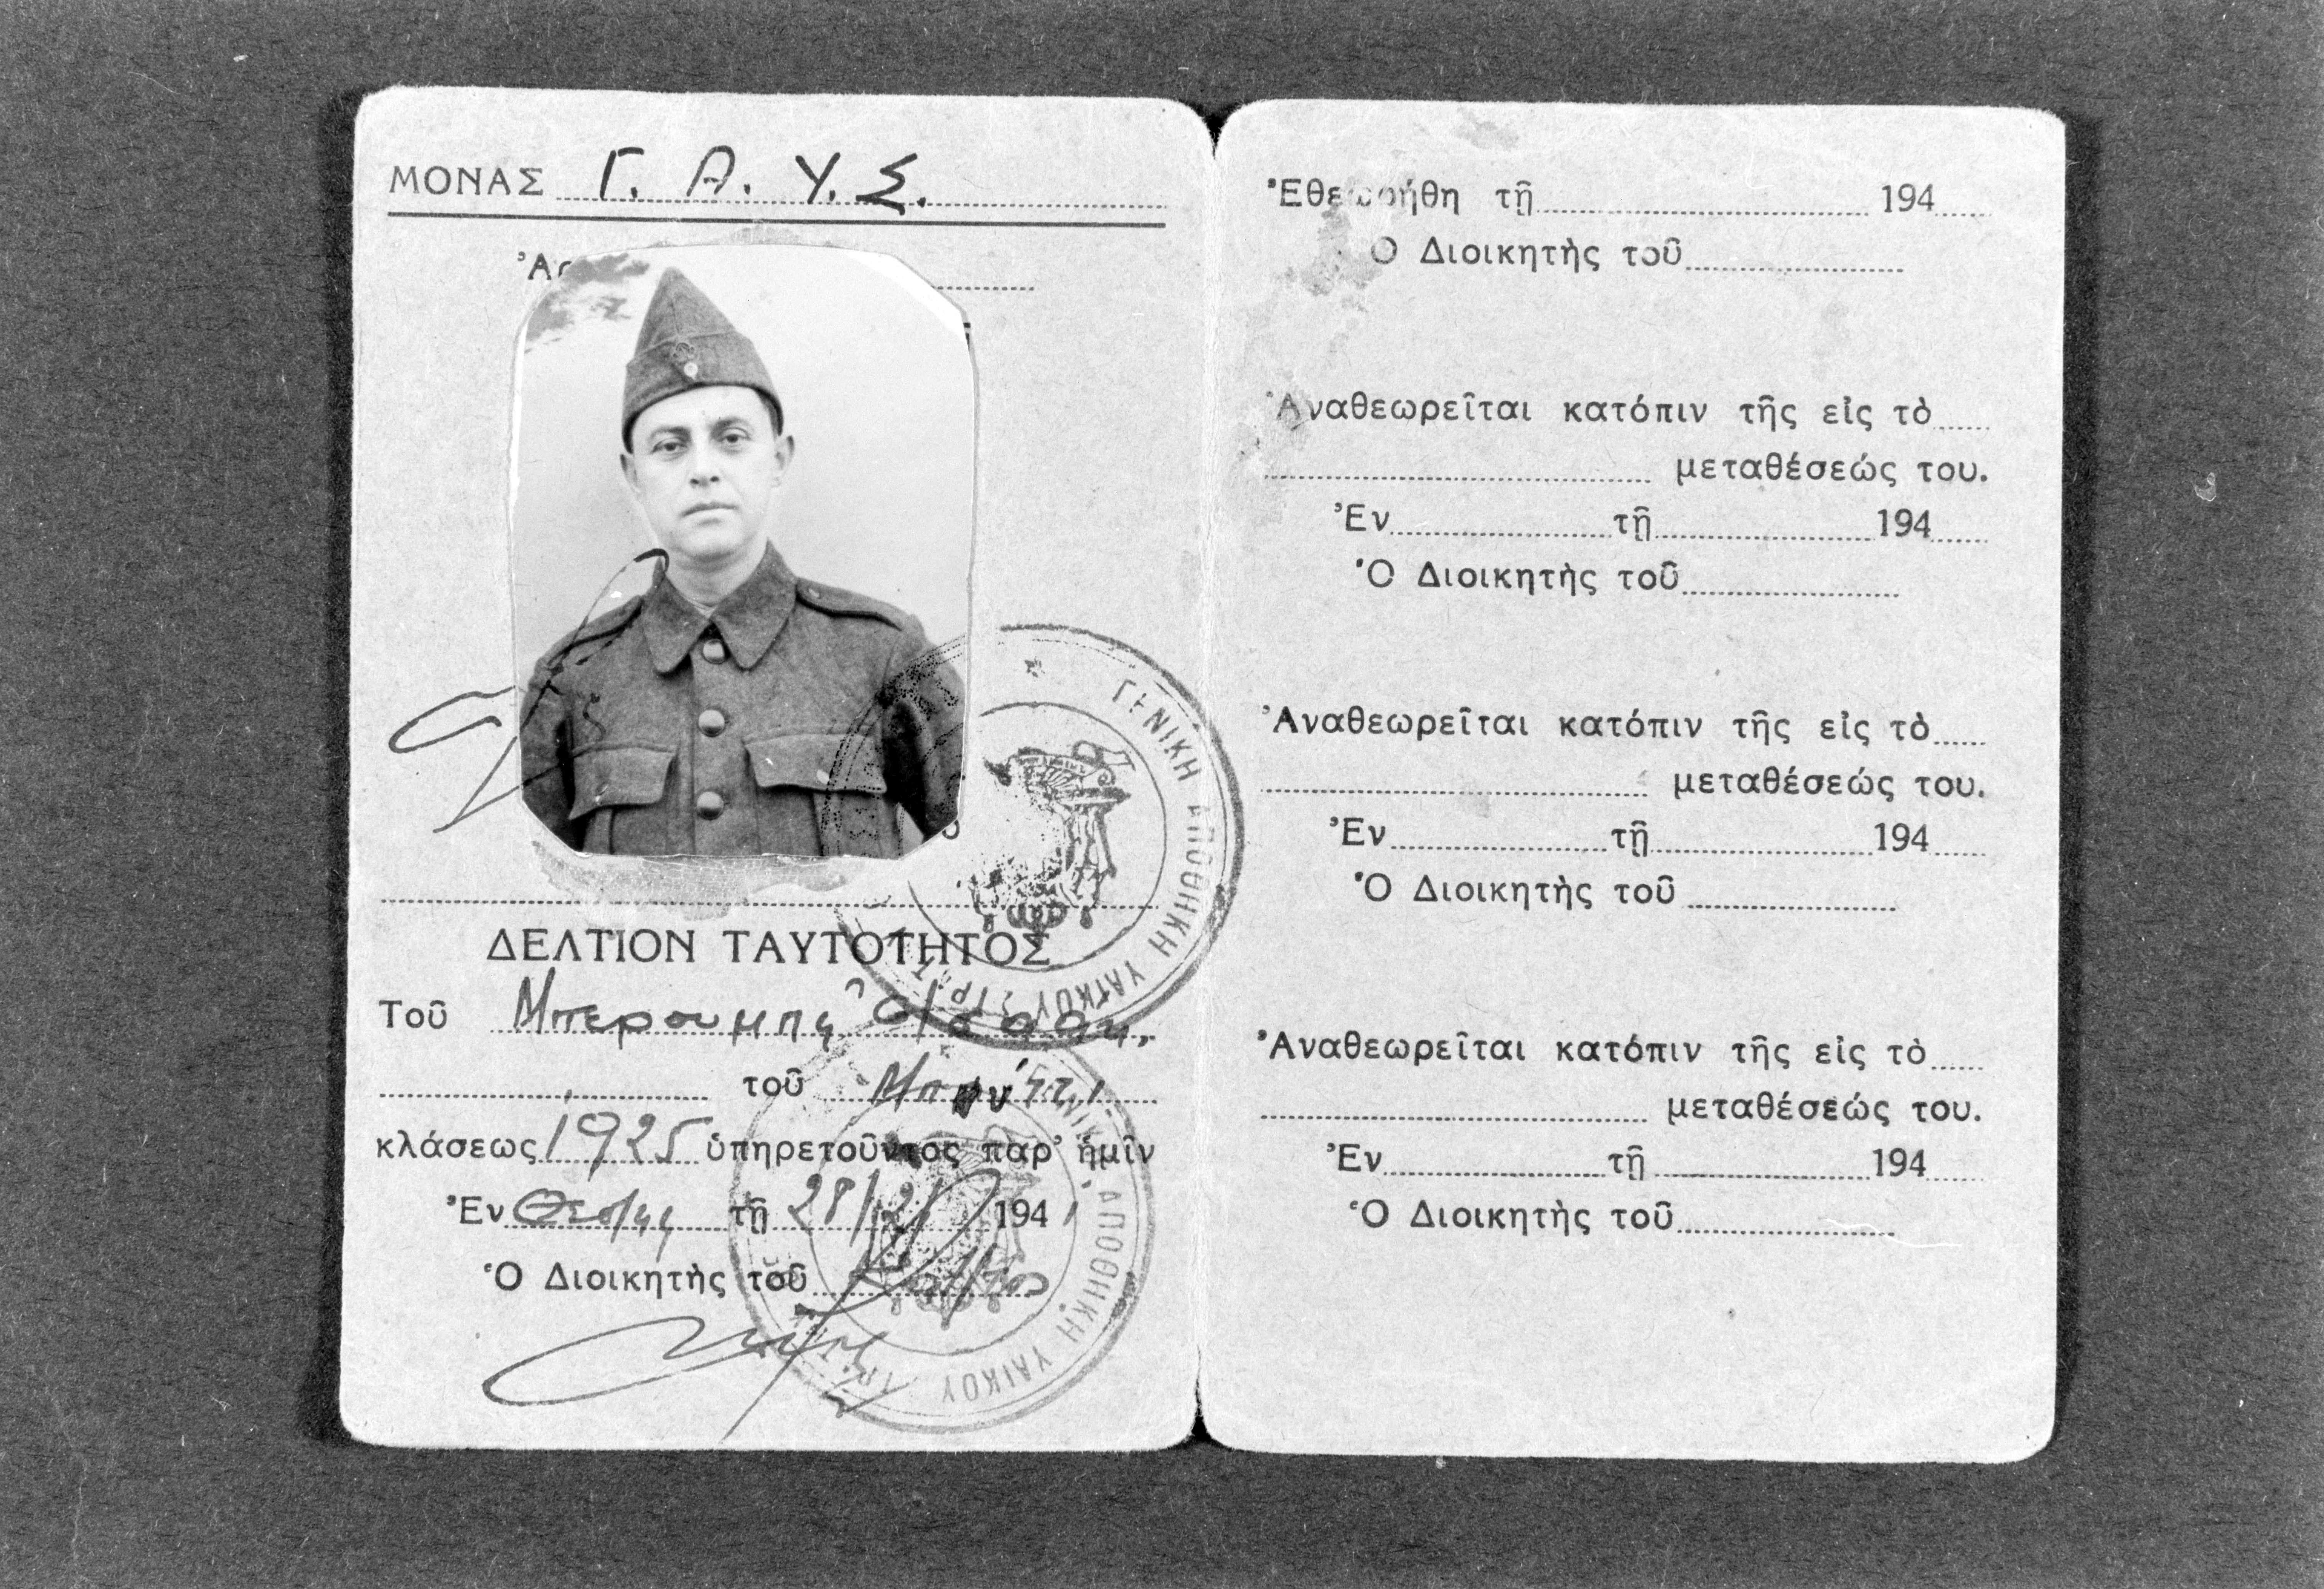 ΜΟΝΑΣ Γ. Α. Υ. Σ.
ΔΕΛΤΙΟΝ ΤΑΥΤΟΤΗΤΟΣ
Τοῦ Μπερουμπη
τοῦ
κλάσεως 1925 ὑπηρετοῦντος παρ' ἡμῖν
Ἐν Θεσ/κη τῇ 28/2/ 1941
Ὁ Διοικητὴς τοῦ
ΓΕΝΙΚΗ ΑΠΟΘΗΚΗ ΥΛΙΚΟΥ
ΑΠΟΘΗΚΗ ΥΛΙΚΟΥ
Ἐθεωρήθη τῇ 194
Ὁ Διοικητὴς τοῦ
Ἀναθεωρεῖται κατόπιν τῆς εἰς τὸ
μεταθέσεώς του.
Ἐν τῇ 194
Ὁ Διοικητὴς τοῦ
Ἀναθεωρεῖται κατόπιν τῆς εἰς τὸ
μεταθέσεώς του.
Ἐν τῇ 194
Ὁ Διοικητὴς τοῦ
Ἀναθεωρεῖται κατόπιν τῆς εἰς τὸ
μεταθέσεώς του.
Ἐν τῇ 194
Ὁ Διοικητὴς τοῦ